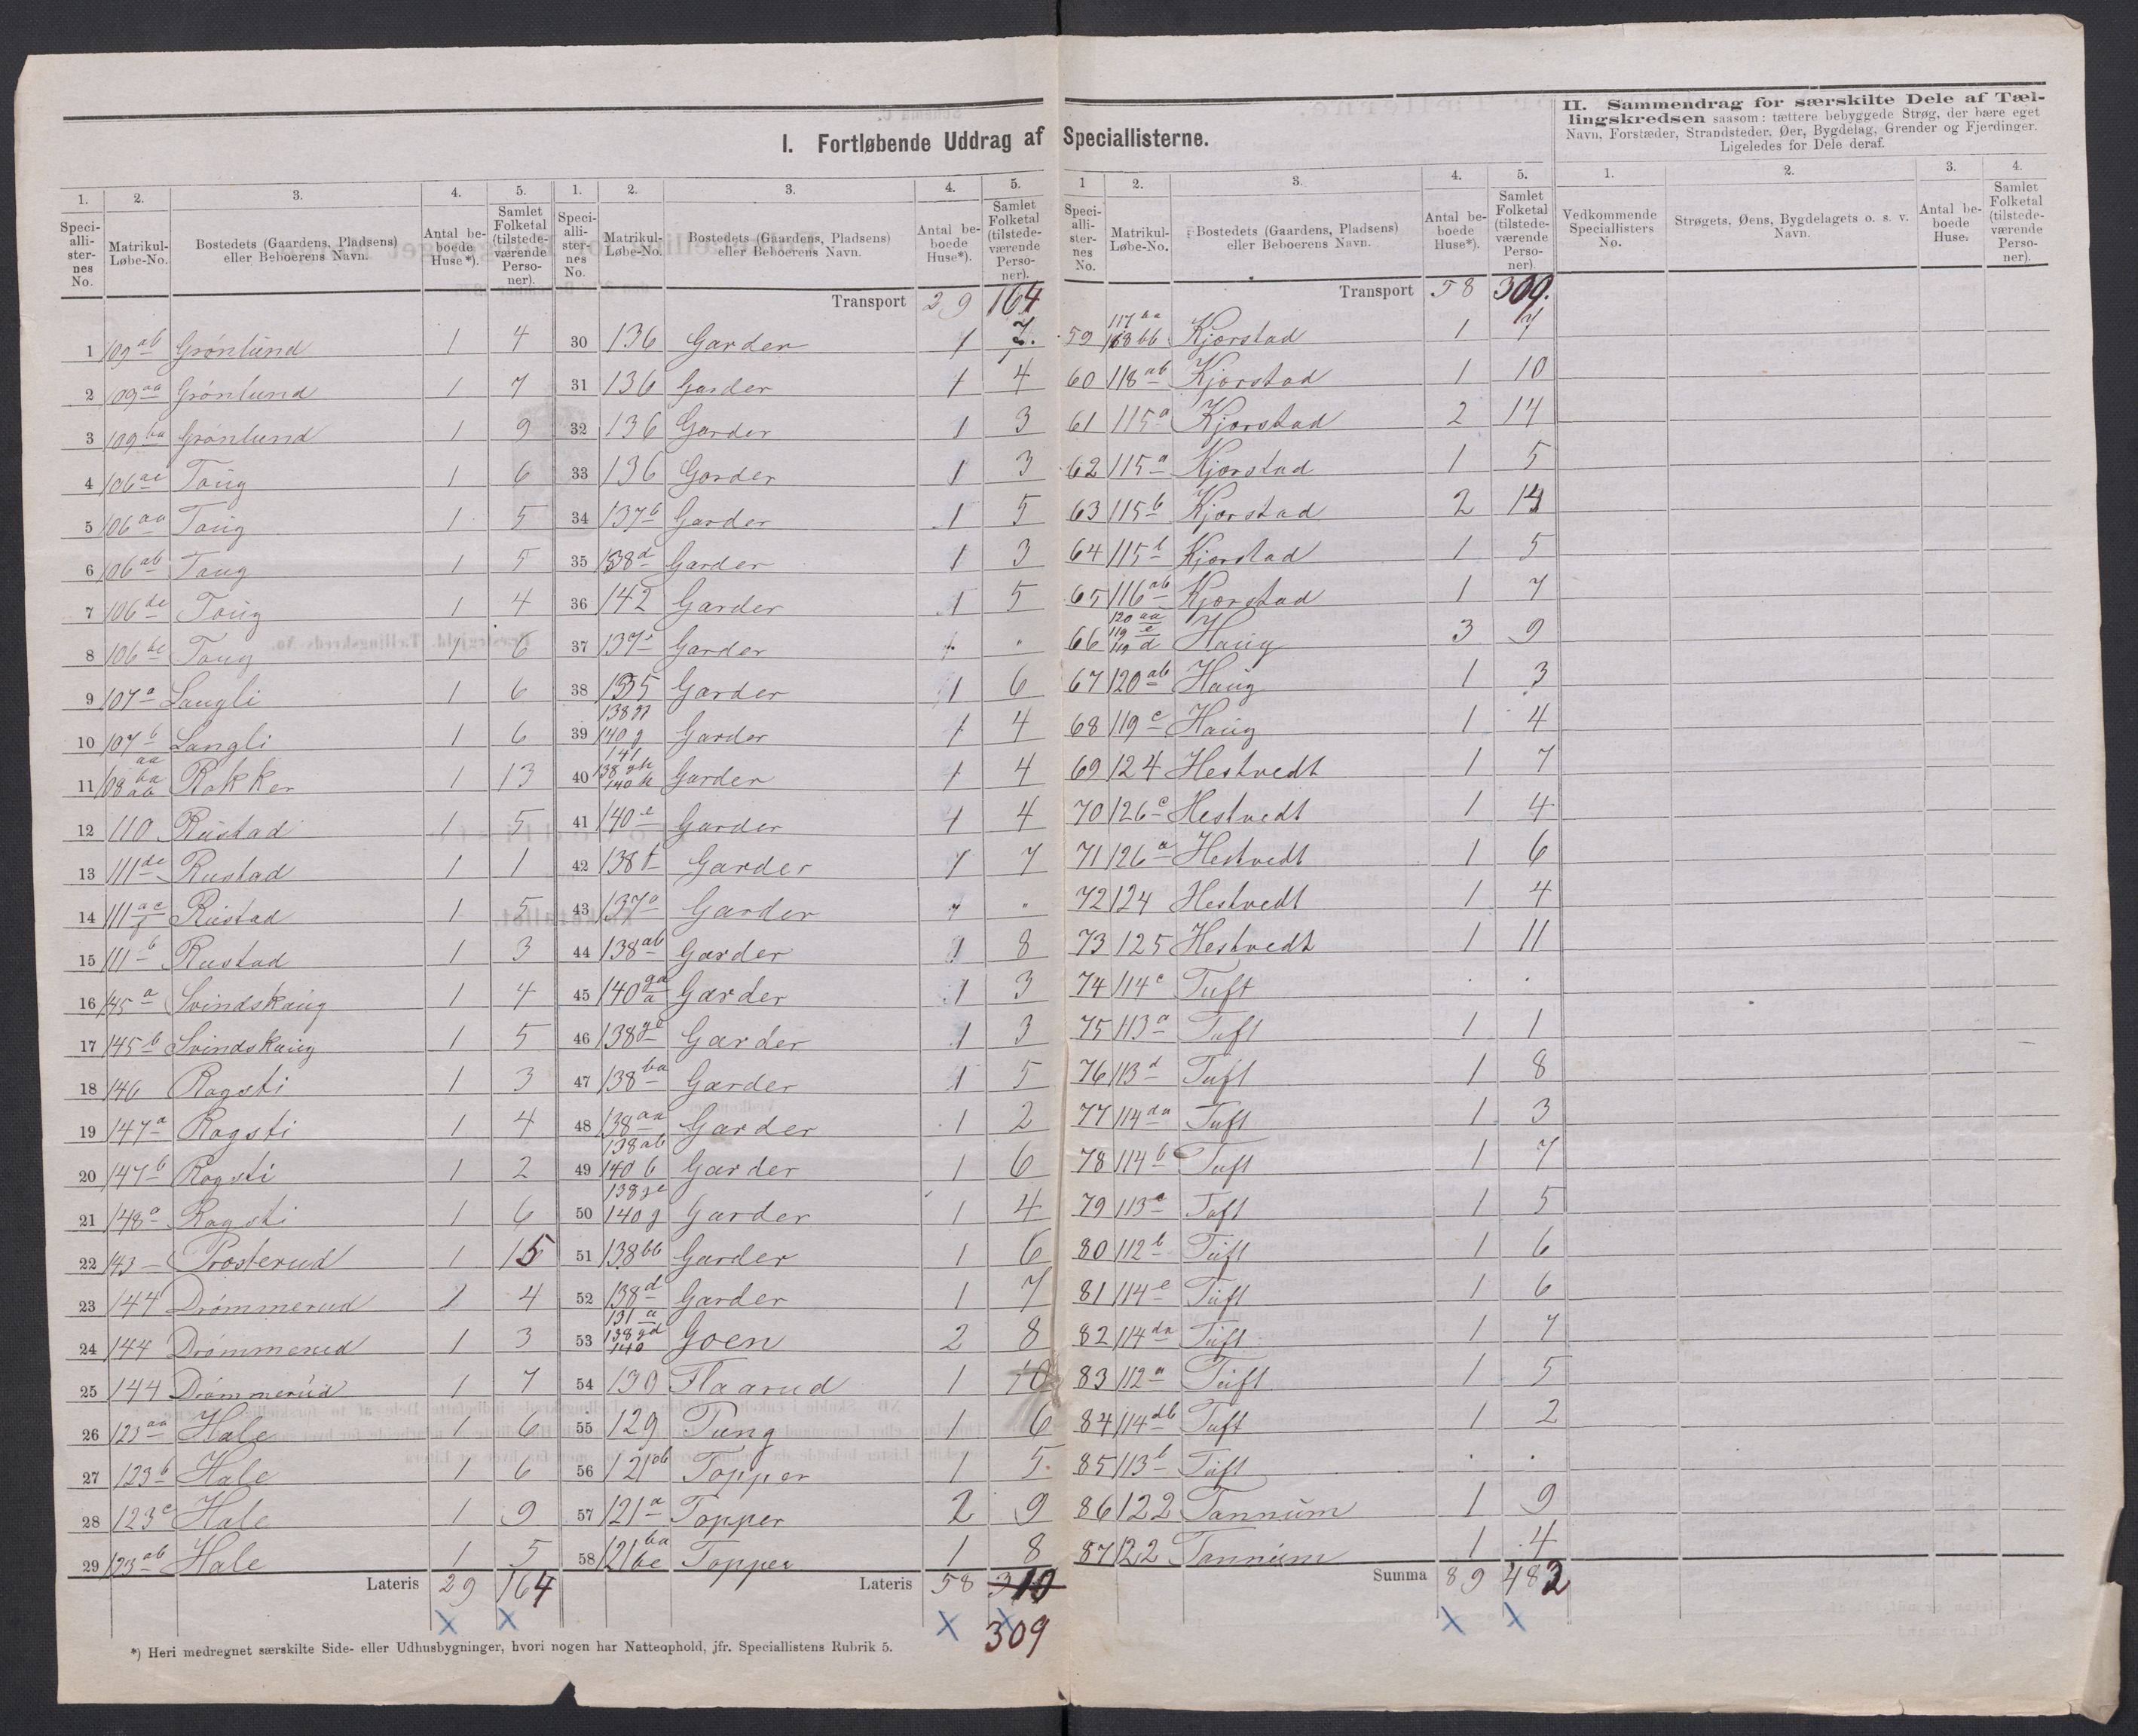 I. Fortløbende Uddrag af Speciallisterne.
II. Sammendrag for særskilte Dele af Tællingskredsen saasom: tættere bebyggede Strøg, der bære eget
Navn, Forstæder, Strandsteder, Øer, Bygdelag, Grender og Fjerdinger.
Ligeledes for Dele deraf.
1. 2. 3. 4. 5.
Speciallisternes No. Matrikul-Løbe-No. Bostedets (Gaardens, Pladsens) eller Beboerens Navn. Antal beboede Huse*). Samlet Folketal (tilstedeværende Personer).
1 109 ab Grønlund 1 4
2 109 aa Grønlund 1 7
3 109 ba Grønlund 1 9
4 106 ae Taug 1 6
5 106 aa Taug 1 5
6 106 ab Taug 1 5
7 106 de Taug 1 4
8 106 be Taug 1 6
9 107 a Langli 1 6
10 107 b Langli 1 6
11 108 aa ba ab Rakker 1 13
12 110 Rustad 1 5
13 111 de Rustad 1 1
14 111 ac f Rustad 1 5
15 111 b Rustad 1 3
16 145 a Svindskaug 1 4
17 145 b Svindskaug 1 5
18 146 Ragsti 1 3
19 147 a Ragsti 1 4
20 147 b Ragsti 1 2
21 148 a Ragsti 1 6
22 143 Prosterud 1 15
23 144 Drømmerud 1 4
24 144 Drømmerud 1 3
25 144 Drømmerud 1 7
26 123 aa Hale 1 6
27 123 b Hale 1 6
28 123 c Hale 1 9
29 123 ab Hale 1 5
Lateris 29 164
1. 2. 3. 4. 5.
Speciallisternes No. Matrikul-Løbe-No. Bostedets (Gaardens, Pladsens) eller Beboerens Navn. Antal beboede Huse*). Samlet Folketal (tilstedeværende Personer).
Transport 29 164
30 136 Garder 1 7.
31 136 Garder 1 4
32 136 Garder 1 3
33 136 Garder 1 3
34 137 b Garder 1 5
35 138 d Garder 1 3
36 142 Garder 1 5
37 137 Garder
38 135 Garder 1 6
39 140 g Garder 1 4
40 138 gh 140 h Garder 1 4
41 140 e Garder 1 4
42 138 f Garder 1 7
43 137 a Garder
44 138 ab Garder 1 8
45 140 ga a Garder 1 3
46 138 ge Garder 1 3
47 138 ba Garder 1 5
48 138 aa Garder 1 2
49 138 ab 140 b Garder 1 6
50 138 ge 140 g Garder 1 4
51 138 bb Garder 1 6
52 138 d Garder 1 7
53 131 a 138 gd 140 Goen 2 8
54 139 Flaarud 1 10
55 129 Pung 1 6
56 121 ab Topper 1 5.
57 121 a Topper 2 9
58 121 ba be Topper 1 8
Lateris 58 310
309
1 2. 3. 4. 5.
Speciallisternes No. Matrikul-Løbe-No. Bostedets (Gaardens, Pladsens) eller Beboerens Navn. Antal beboede Huse*). Samlet Folketal (tilstedeværende Personer).
Transport 58 309.
59 117 aa 118 bb Kjorstad 1 7
60 118 ab Kjorstad 1 10
61 115 a Kjorstad 2 14
62 115 a Kjorstad 1 5
63 115 b Kjorstad 2 14
64 115 b Kjorstad 1 5
65 116 ab Kjorstad 1 7
66 120 aa 119 e 119 d Haug 3 9
67 120 ab Haug 1 3
68 119 c Haug 1 4
69 124 Hestvedt 1 7
70 126 c Hestvedt 1 4
71 126 a Hestvedt 1 6
72 124 Hestvedt 1 4
73 125 Hestvedt 1 11
74 114 c Tuft . .
75 113 a Tuft 1 1
76 113 d Tuft 1 8
77 114 da Tuft 1 3
78 114 b Tuft 1 7
79 113 c Tuft 1 5
80 112 b Tuft 1 6
81 114 e Tuft 1 6
82 114 da Tuft 1 7
83 112 a Tuft 1 5
84 114 db Tuft 1 2
85 113 b Tuft . .
86 122 Tannum 1 9
87 122 Tannum 1 4
Summa 89 482
1. 2. 3. 4.
Vedkommende Speciallisters No. Strøgets, Øens, Bygdelagets o. s. v. Navn. Antal beboede Huse. Samlet Folketal (tilstedeværende Personer).
*) Heri medregnet særskilte Side- eller Udhusbygninger, hvori nogen har Natteophold, jfr. Speciallistens Rubrik 5.